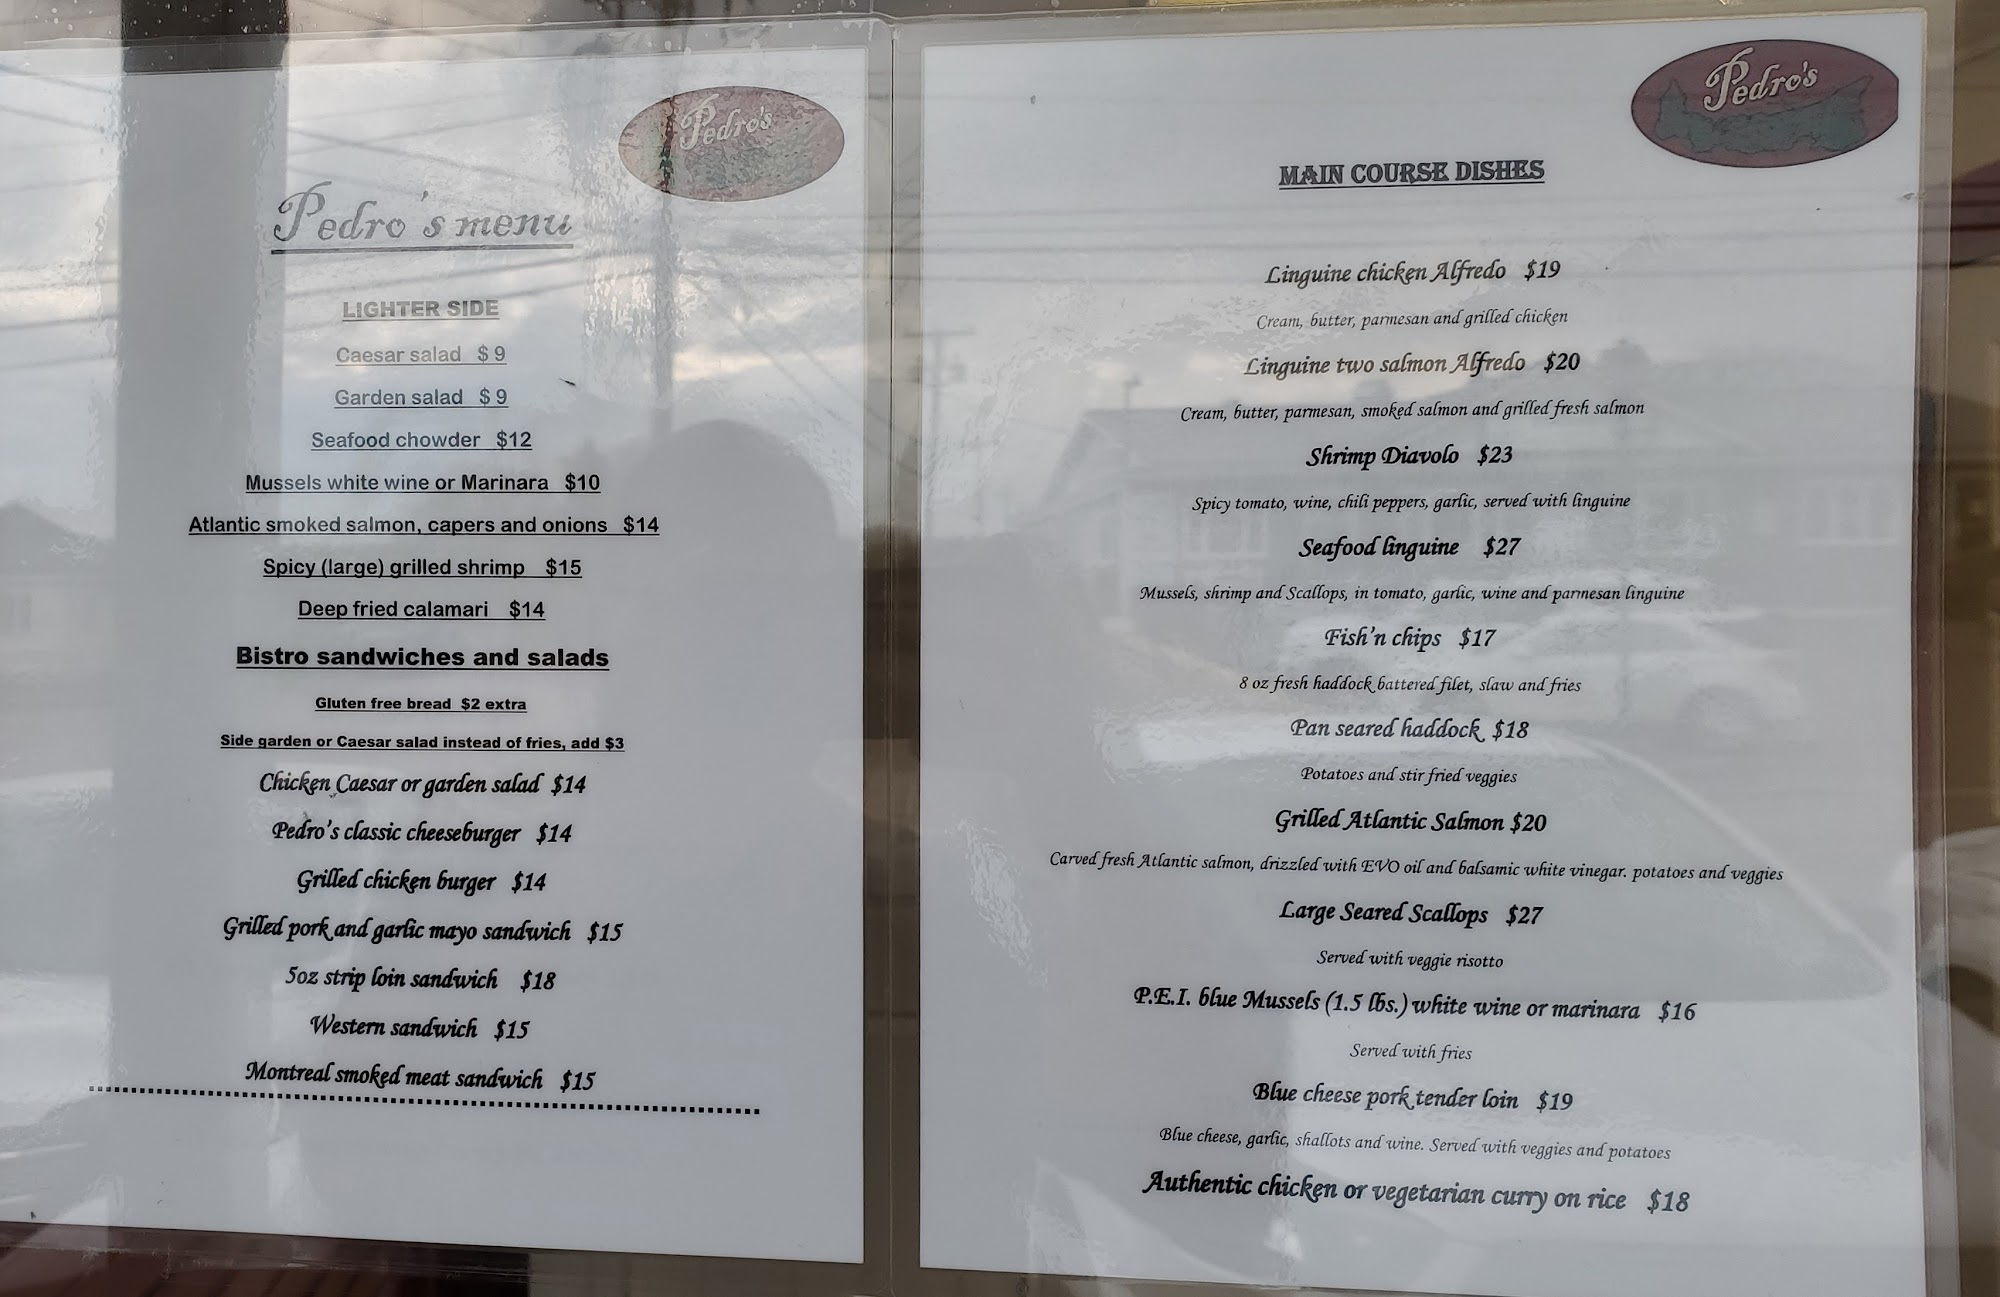 Pedro's
Pedro's menu
LIGHTER SIDE
Caesar salad $ 9
Garden salad $ 9
Seafood chowder $12
Mussels white wine or Marinara $10
Atlantic smoked salmon, capers and onions $14
Spicy (large) grilled shrimp $15
Deep fried calamari $14
Bistro sandwiches and salads
Gluten free bread $2 extra
Side garden or Caesar salad instead of fries, add $3
Chicken Caesar or garden salad $14
Pedro's classic cheeseburger $14
Grilled chicken burger $14
Grilled pork and garlic mayo sandwich $15
5oz strip loin sandwich $18
Western sandwich $15
Montreal smoked meat sandwich $15
Pedro's
MAIN COURSE DISHES
Linguine chicken Alfredo $19
Cream, butter, parmesan and grilled chicken
Linguine two salmon Alfredo $20
Cream, butter, parmesan, smoked salmon and grilled fresh salmon
Shrimp Diavolo $23
Spicy tomato, wine, chili peppers, garlic, served with linguine
Seafood linguine $27
Mussels, shrimp and Scallops, in tomato, garlic, wine and parmesan linguine
Fish'n chips $17
8 oz fresh haddock battered filet, slaw and fries
Pan seared haddock $18
Potatoes and stir fried veggies
Grilled Atlantic Salmon $20
Carved fresh Atlantic salmon, drizzled with EVO oil and balsamic white vinegar. potatoes and veggies
Large Seared Scallops $27
Served with veggie risotto
P.E.I. blue Mussels (1.5 lbs.) white wine or marinara $16
Served with fries
Blue cheese pork tender loin $19
Blue cheese, garlic, shallots and wine. Served with veggies and potatoes
Authentic chicken or vegetarian curry on rice $18